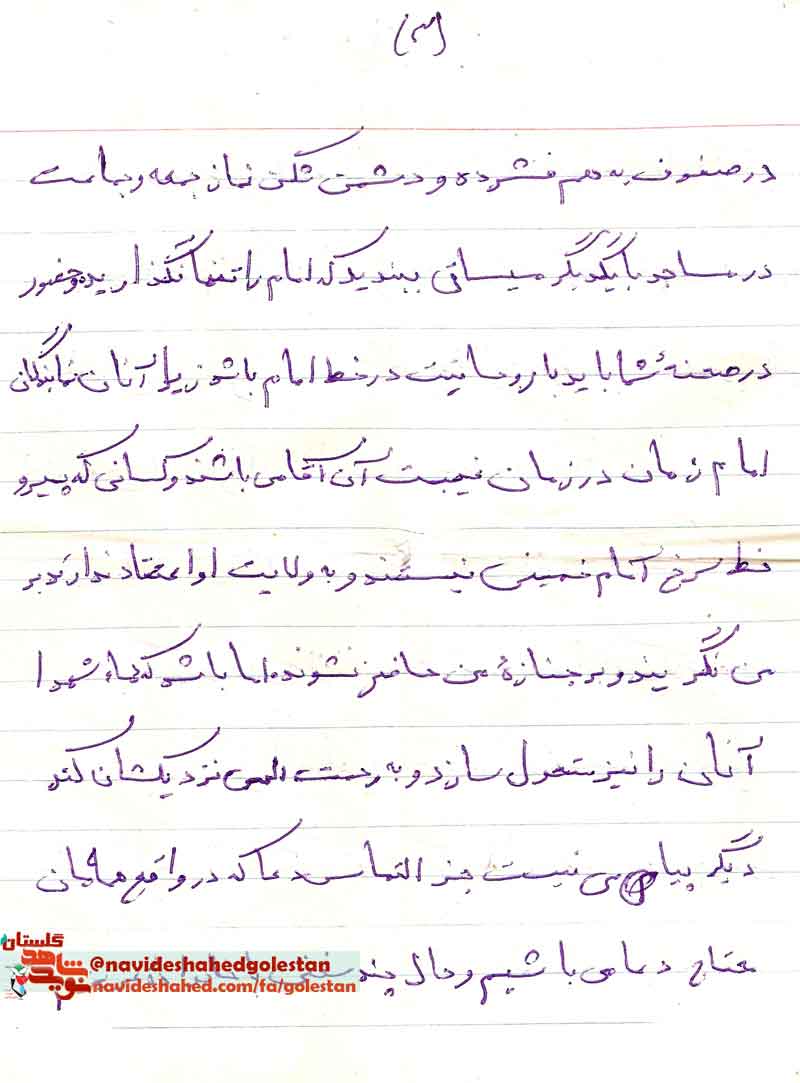 (۳)
در صفوف به هم فشرده و دشمن شکن نماز جمعه و جماعت
در مساجد با یکدیگر میساقی ببندید که امام را تنها نگذارید و حضور
در صحنهٔ شما باید با روحانیت در خط امام باشد زیرا آنان نمایندگان
امام زمان در زمان غیبت آن آقا می باشند و کسانی که پیرو
خط سرخ امام خمینی نیستند و به ولایت او اعتقاد ندارند بر
من نگریند و بر جنازهٔ من حاضر نشوند اما باشد که دماء شهدا
آنان را نیز متحول سازد و به رحمت الهی نزدیکشان کند
دیگر پیامی نیست جز التماس دعا که در واقع همه‌مان
محتاج دعا می باشیم و حال چند سخنی با خانواده
گلستان
نوید شاهد
@navideshahedgolestan
navideshahed.com/fa/golestan